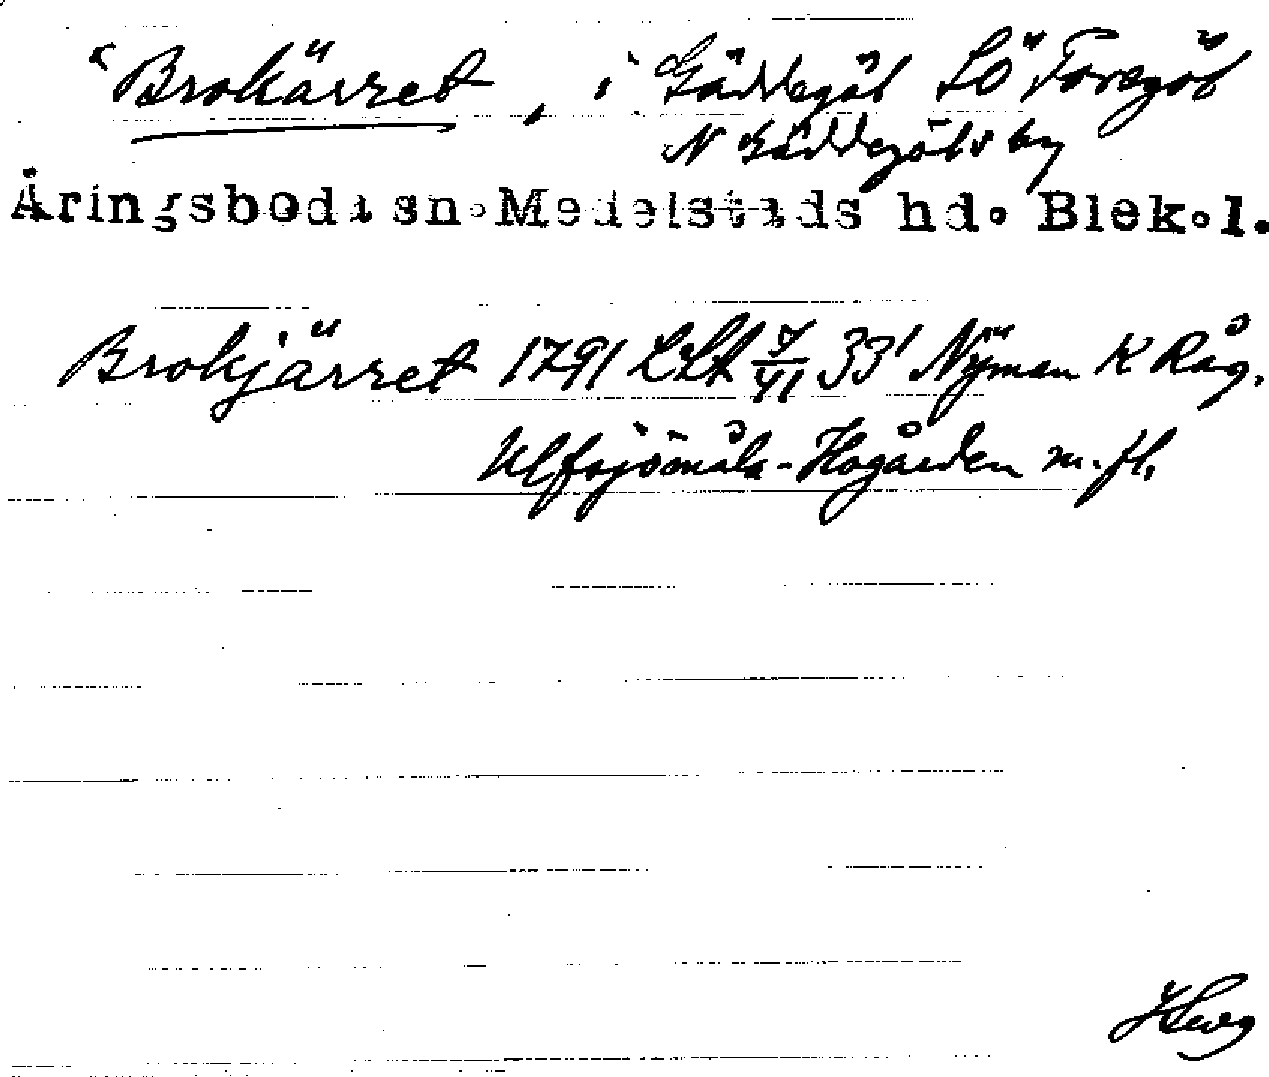 "Brokärret, i Gäddegöl SÖ Toregöl
N Gäddegöls by
Äringsboda sn. Medelstads hd. Blek.l.
Brokjärret 1791 LSA 7/VI 33' Nyman K Råg.
Ulfsjömåla-Hogården m.fl.